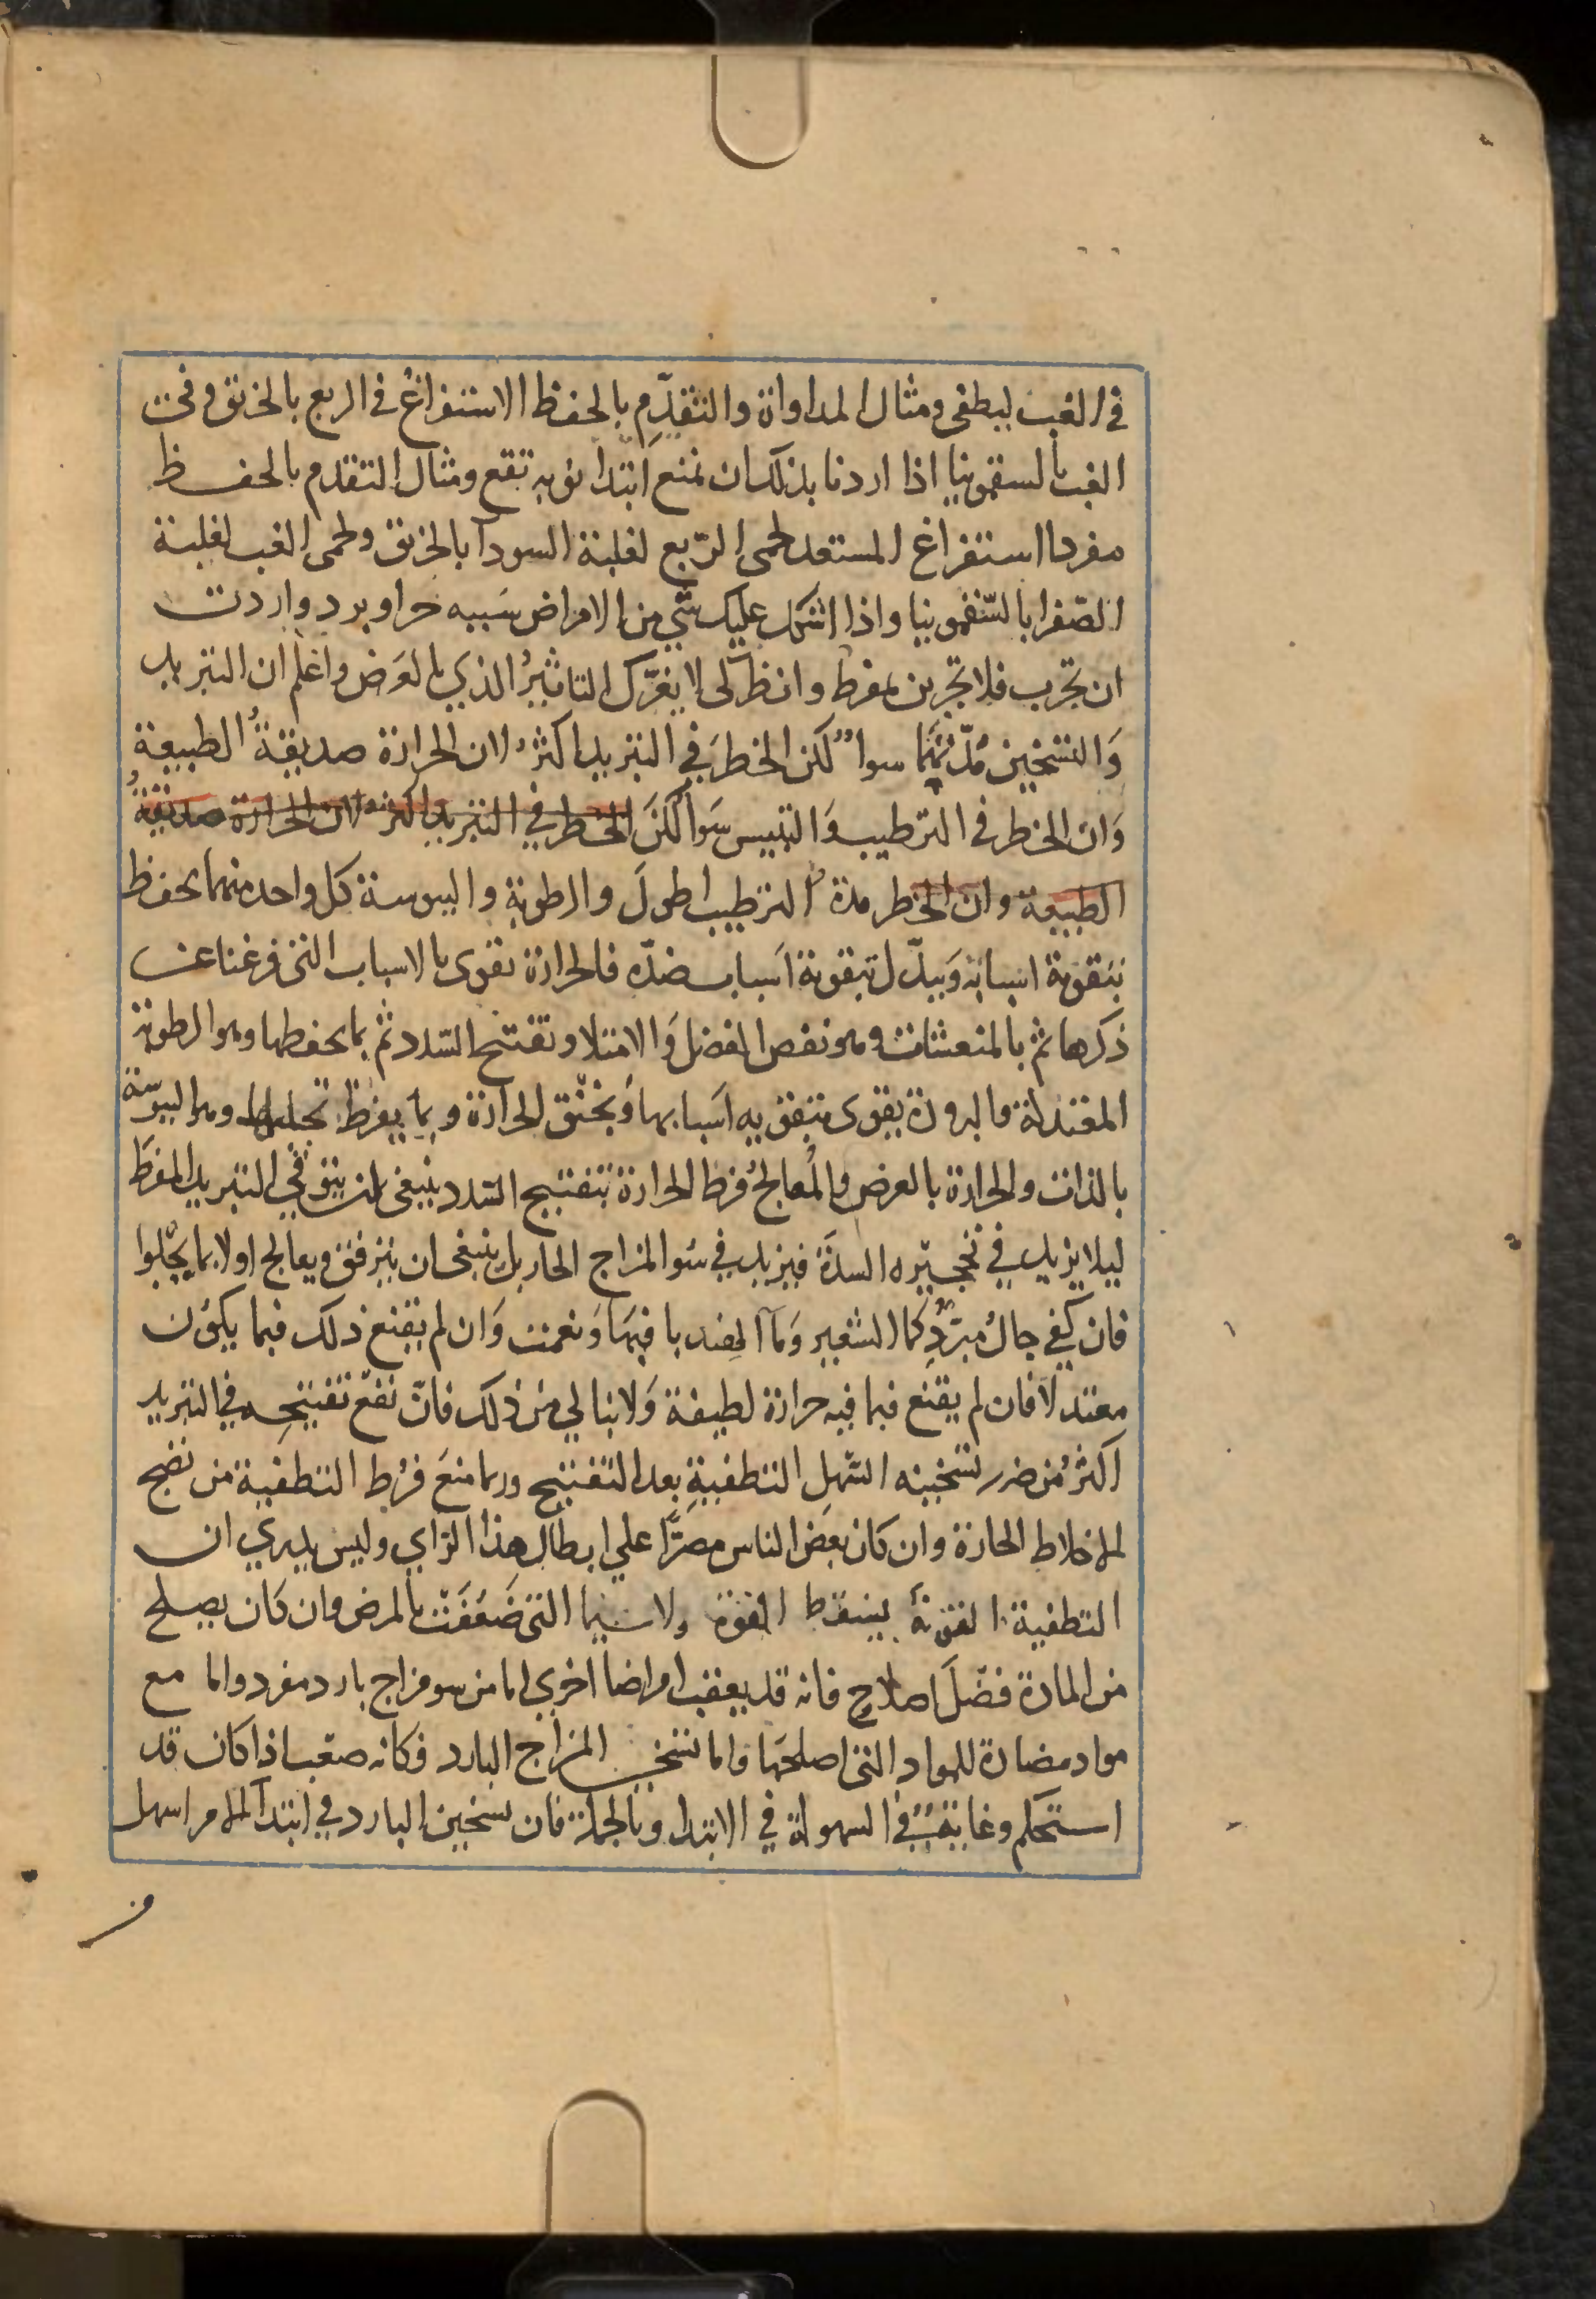 في الغب ليطفى ومثال المداواة والتقدّم بالحفظ الاستفراغ في الربع بالخربق وفي
الغب بالسقمونيا اذا اردنا بذلك ان نمنع ابتدا نوبه تقع ومثال التقدم بالحفظ
مفردا استفراغ المستعد لحمى الرّبع لغلبة السودا بالخربق ولحمى الغب لغلبة
الصّفرا بالسّقمونيا واذا اشكل عليك شي من الامراض سببه حر او برد واردت
ان تجرب فلا تجربن بمفرط وانظر لى لا يغرّك التاثيرُ الذي بالعرض واعلم ان التبريد
وَالتسخين مُدّتهما سوا لكن الخطرَ في التبريد اكثرُ لان الحرارة صديقةُ الطبيعة
وَان الخطر في الترطيب وَالتيبيس سَوا لكنَ الخطر في التبريد اكثر لان الحرارة صديقةُ
الطبيعة وان الخطر مدة الترطيب اطولَ والرطوبة واليبوسة كل واحد منهما يحفظ
بتقوية اسبابه وَيبدّل بتقوية اسباب ضدّه فالحرارة تقوى بالاسباب التى فرغنا عن
ذكرها ثم بالمنعشات وهو نفص الفضل وَالامتلا وتفتح السّدد ثم بما يحفظها وهو الرطوبة
المعتدلة والبرودة يقوى بتقويه اسبابها وَبخنق الحرارة وبما يفرط تحليلها وهو اليبوسة
بالذات والحرارة بالعرض والمُعالجُ فرط الحرارة بتفتيح السدد ينبغى ان يتوقي التبريد المفرط
ليلا يزيد في تحجيره السدَة فيزيد في سُو المزاج الحار بل ينبغى ان يترفق ويعالج اولا بما يجلوا
فان كفي جالٌ مبرّدٌ كما الشعير وَما الهندبا فبهَا وَنعمت وَان لم يقنع ذلك فبما يكون
معتدلاً فان لم يقنع فبما فيه حرارة لطيفة وَلا تبالي من ذلك فانّ نفع تفتيحه في التبريد
اكثرُ من ضرر تسخينه السّهلِ التطفيةِ بعد التفتيح وربما منعَ فرُط التطفية من نضج
الاخلاط الحارة وان كان بعض الناس مصرًّا علي ابطال هذا الرّاي وليس يدري ان
التطفية القوية يسقط القوة ولا سيما التى ضَعُفَت بالمرض وان كان يصلح
من المادة فضلَ اصلاحٍ فانه قد يعقب امراضا اخري اما من سو مزاج بارد مفرد واما مع
مواد مضادة للمواد التى اصلحَها واما تسخين المزاج البارد فكانه صعب اذا كان قد
استحكم وغايةٌ في السهولة في الابتدا وبالجملة فان تسخين البارد في ابتدا الامر اسهل
من